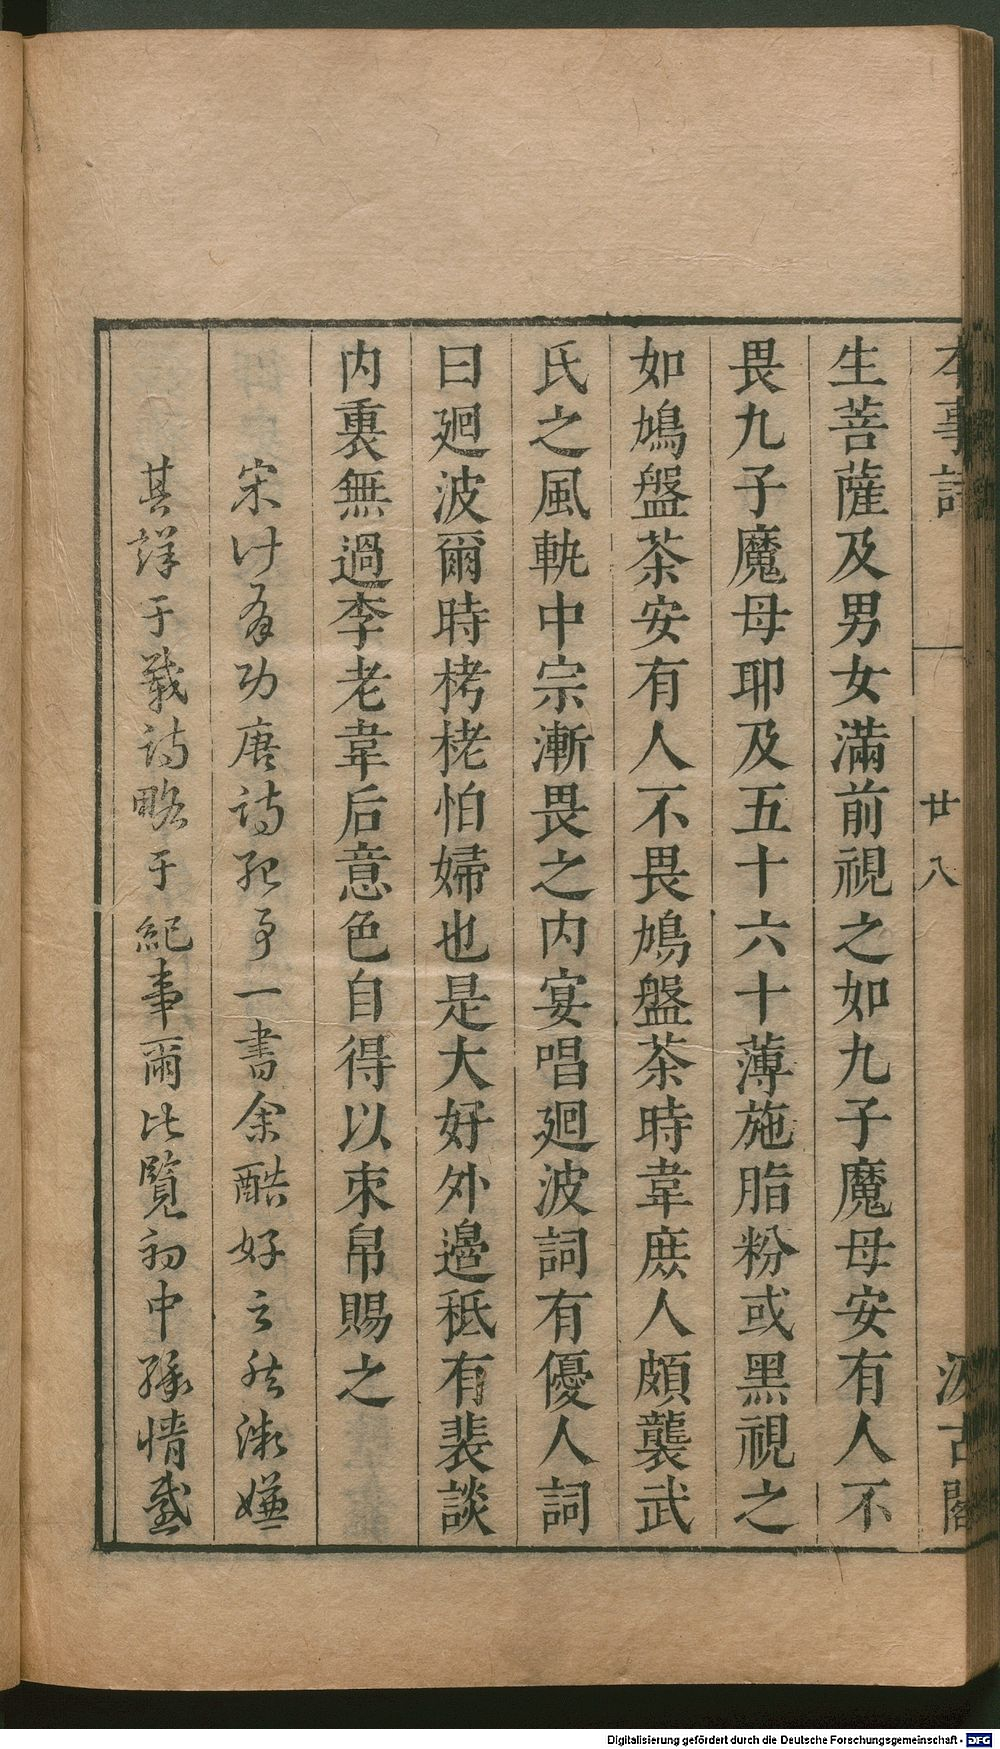 本事詩 廿八 汲古閣
生菩薩及男女滿前視之如九子魔母安有人不
畏九子魔母耶及五十六十薄施脂粉或黑視之
如鳩盤茶安有人不畏鳩盤茶時韋庶人頗襲武
氏之風軌中宗漸畏之内宴唱廻波詞有優人詞
曰廻波爾時栲栳怕婦也是大好外邊秪有裴談
内裏無過李老韋后意色自得以束帛賜之
宋计有功唐诗紀事一書余酷好之然微嫌
其詳于载诗略于紀事爾比覽初中孫情感
Digitalisierung gefördert durch die Deutsche Forschungsgemeinschaft - DFG